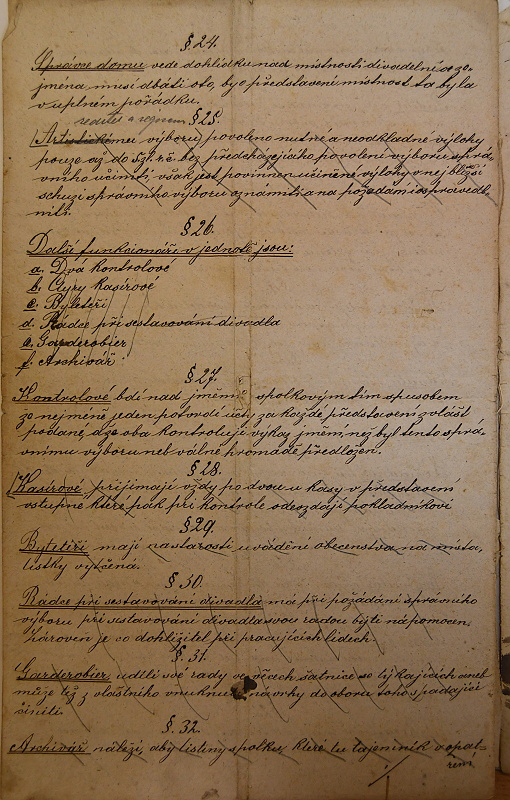 § 24.
Správce domu vede dohlídku nad místností divadelní a ze-
jména musí dbáti oto, by o představení místnost ta byla
v uplném pořádku.
§ 25.
výboru povoleno nutné a neodkladné výlohy
pouze až do 5 zl. r. č. bez předcházejícího povolení výboru sprá-
vního učiniti, však jest povinnen učiněné výlohy v nejbližší
schuzi správního výboru oznámiti a na požádaní ospravedl-
niti.
§ 26.
Další funkcionáři v jednotě jsou:
a. Dvá kontrolové
b. Čtyry kasírové
c. Byletéři
d. Rádce při sestavování divadla
e. Garderobier
f. Archivář
§ 27.
Kontrolové bdí nad jměním spolkovým tím spusobem
že nejméně jeden potvrdí účty za každé představení zvlášť
podané, a že oba kontrolují výkaz jmění, než byl tento sprá-
vnímu výboru neb valné hromadě předložen.
§ 28.
Kasírové přijímají vždy po dvou u kasy v představení
vstupné které pak při kontrole odevzdají pokladníkovi
§ 29.
Byletéři mají na starosti uvádění obecenstva na místa,
lístky vytčená.
§ 30.
Rádce při sestavování divadla má při požádání správního
výboru při sestavování divadla svou radou býti nápomocen.
Zároveň je co dohlížitel při pracujících lidech.
§ 31.
Garderobier udílí své rady ve věcech šatnice se týkajících aneb
může též z vlastního vnuknutí návrhy do oboru toho spadající
činiti.
§ 32.
Archivář náleží, aby listiny spolku, které tu tajemník v opat-
rení